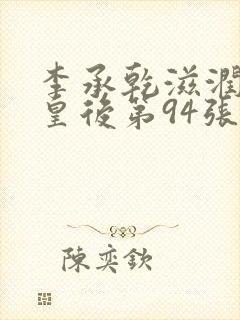 李承乾滋潤
皇後第94張
陳奕欽